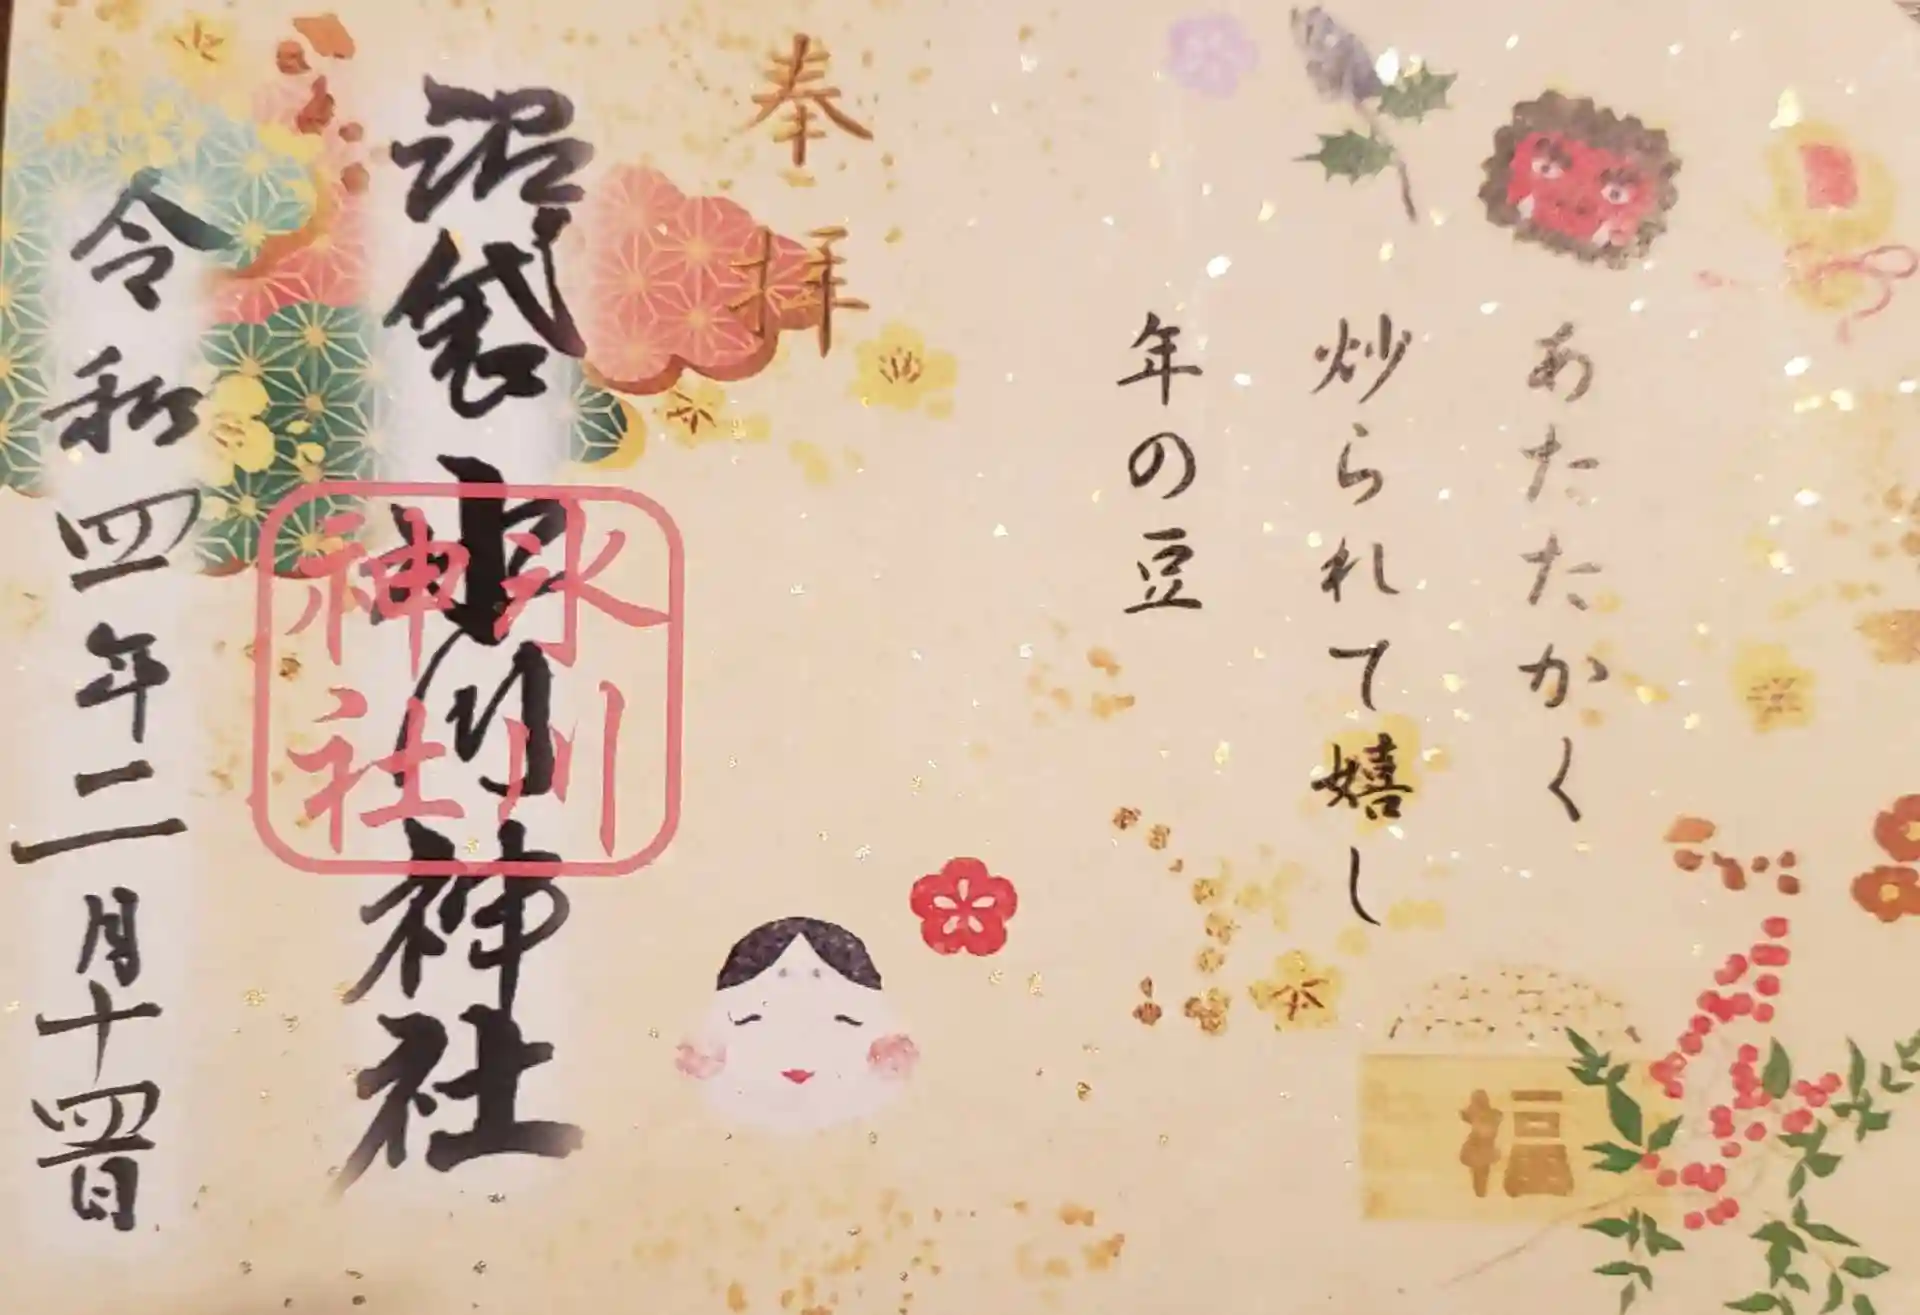 あたたかく
炒られて嬉し
年の豆
福
奉拝
沼袋氷川神社
氷川神社
令和四年二月十四日